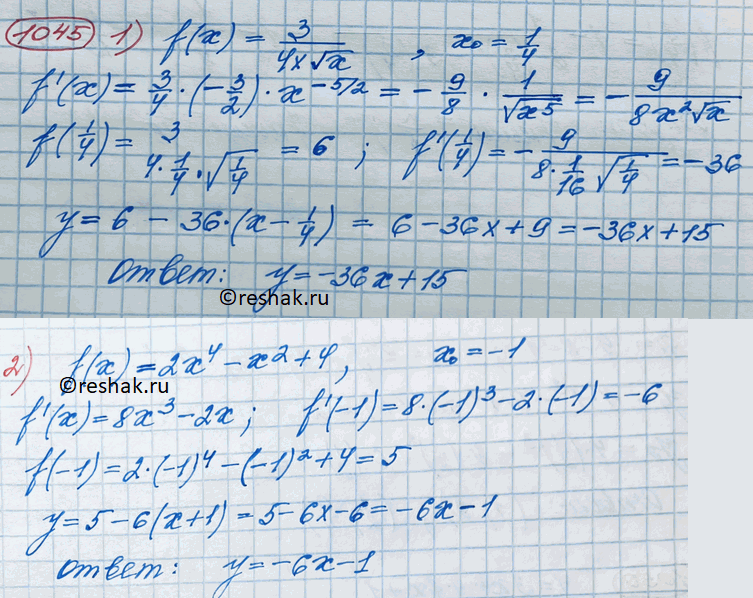 1045 1) f(x) = 3/(4x√x), x₀ = 1/4
f'(x) = 3/4 · (−3/2) · x^(−5/2) = −9/8 · 1/√(x⁵) = −9/(8x²√x)
f(1/4) = 3/(4·1/4·√(1/4)) = 6; f'(1/4) = −9/(8·1/16 √(1/4)) = −36
y = 6 − 36·(x − 1/4) = 6 − 36x + 9 = −36x + 15
Ответ: y = −36x + 15
©reshak.ru
2) f(x) = 2x⁴ − x² + 4, x₀ = −1
©reshak.ru
f'(x) = 8x³ − 2x; f'(−1) = 8·(−1)³ − 2·(−1) = −6
f(−1) = 2·(−1)⁴ − (−1)² + 4 = 5
y = 5 − 6(x+1) = 5 − 6x − 6 = −6x − 1
Ответ: y = −6x − 1